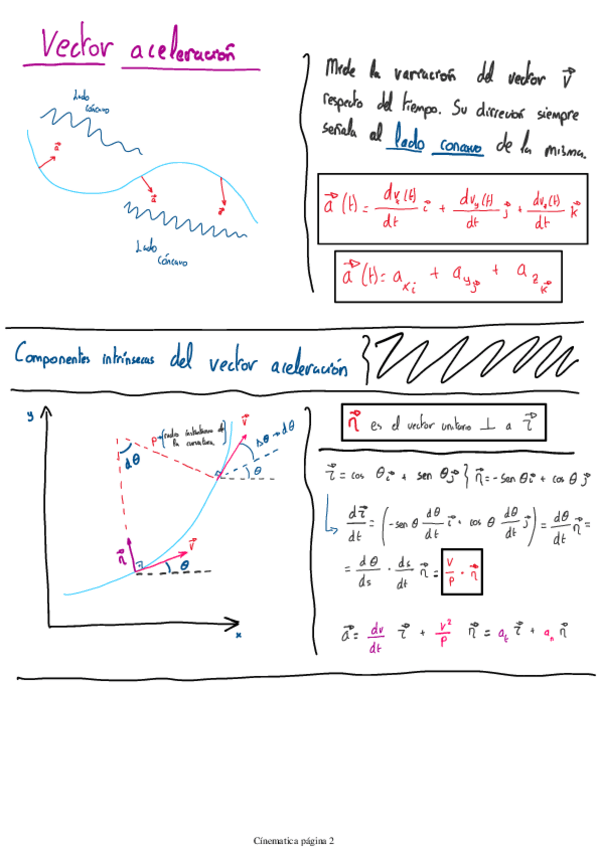 Vector aceleración
Lado
cóncavo
a
a
a
Lado
cóncavo
Mide la variación del vector v⃗
respecto del tiempo. Su dirección siempre
señala al lado concavo de la misma.
a⃗(t) = dvₓ(t)/dt i⃗ + dv_y(t)/dt j⃗ + dv_z(t)/dt k⃗
a⃗(t) = aₓ i + a_y j + a_z k
Componentes intrínsecas del vector aceleración
y
ρ→(radio instantáneo de
la curvatura)
dθ
v⃗
θ+dθ
θ
η⃗
v⃗
θ
x
η⃗ es el vector unitario ⊥ a τ⃗
τ⃗ = cos θ i⃗ + sen θ j⃗ } η⃗ = -sen θ i⃗ + cos θ j⃗
dτ⃗/dt = (-sen θ dθ/dt i⃗ + cos θ dθ/dt j⃗) = dθ/dt η⃗ =
= dθ/ds · ds/dt η⃗ = v/ρ · η⃗
a⃗ = dv/dt τ⃗ + v²/ρ η⃗ = a_t τ⃗ + a_n η⃗
Cínematica página 2